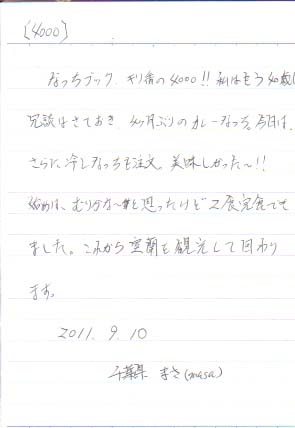 [4000]
なっちブック、キリ番の4000!! 私はもう40歳
冗談はさておき、4ヶ月ぶりのカレーなっち。今日は、
さらに冷しなっちも注文。美味しかった〜!!
始めは、むりかな〜と思ったけど2食完食でき
ました。これから室蘭を観光して回わり
ます。
2011. 9. 10
千葉県 まさ(masa)